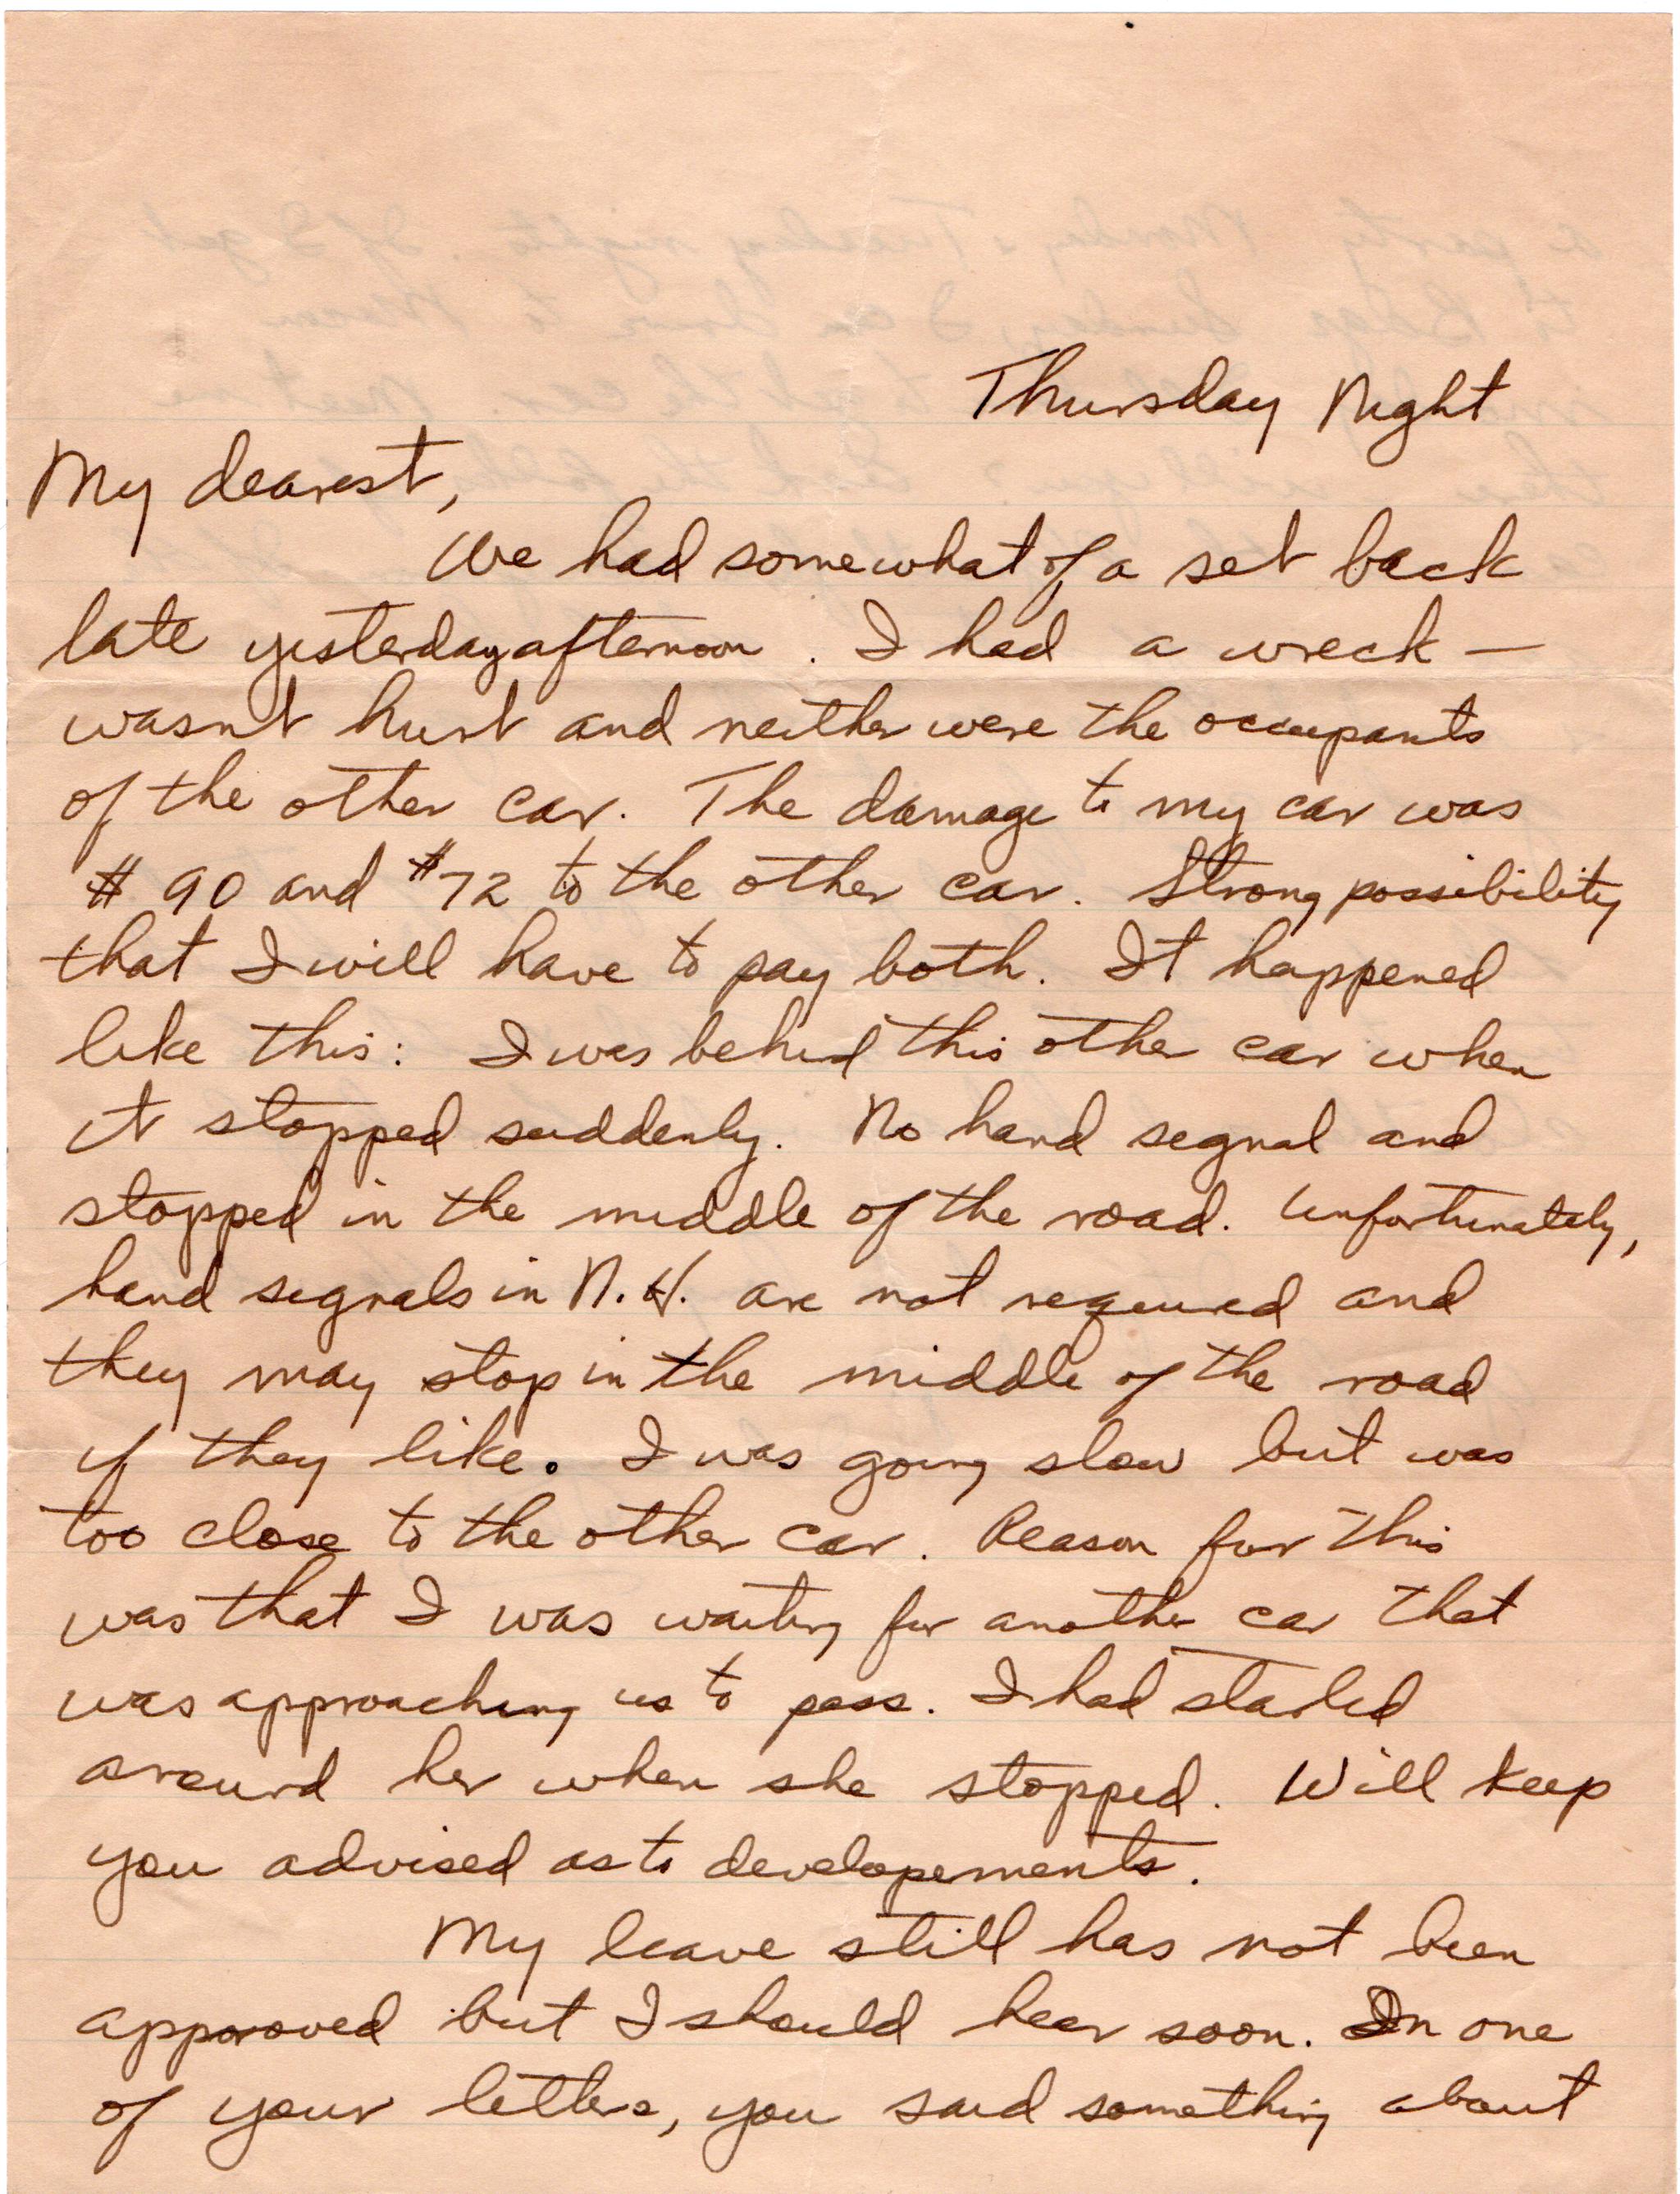 Thursday Night
My dearest,
We had somewhat of a set back
late yesterday afternoon. I had a wreck —
wasn't hurt and neither were the occupants
of the other car. The damage to my car was
$90 and $72 to the other car. Strong possibility
that I will have to pay both. It happened
like this: I was behind this other car when
it stopped suddenly. No hand signal and
stopped in the middle of the road. Unfortunately,
hand signals in N.H. are not required and
they may stop in the middle of the road
if they like. I was going slow but was
too close to the other car. Reason for this
was that I was waiting for another car that
was approaching us to pass. I had started
around her when she stopped. Will keep
you advised as to developements.
My leave still has not been
approved but I should hear soon. In one
of your letters, you said something about